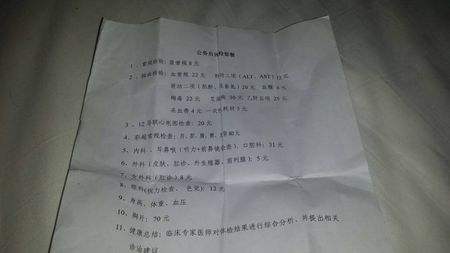 公务员体检套餐
1、常规检验：尿常规 8 元
2、抽血检验：血常规 22 元 肝功二项（ALT、AST）12 元
肾功二项（肌酐、尿素氮）20 元 血糖 6 元
梅毒 22 元 艾滋病 30 元
采血费 4 元 一次性耗材 5 元
3、12 导联心电图检查：20 元
4、彩超常规检查：肝、胆、脾、胰、肾 80 元
5、内科、耳鼻喉（听力+前鼻镜检查）、口腔科：31 元
6、外科（皮肤、肛诊、外生殖器、前列腺）：5 元
7、女外科（肛诊）8 元
8、眼科（视力检查、色觉）：12 元
9、身高、体重、血压
10、胸片：50 元
11、健康总结：临床专家医师对体检结果进行综合分析、并提出相关
诊治建议